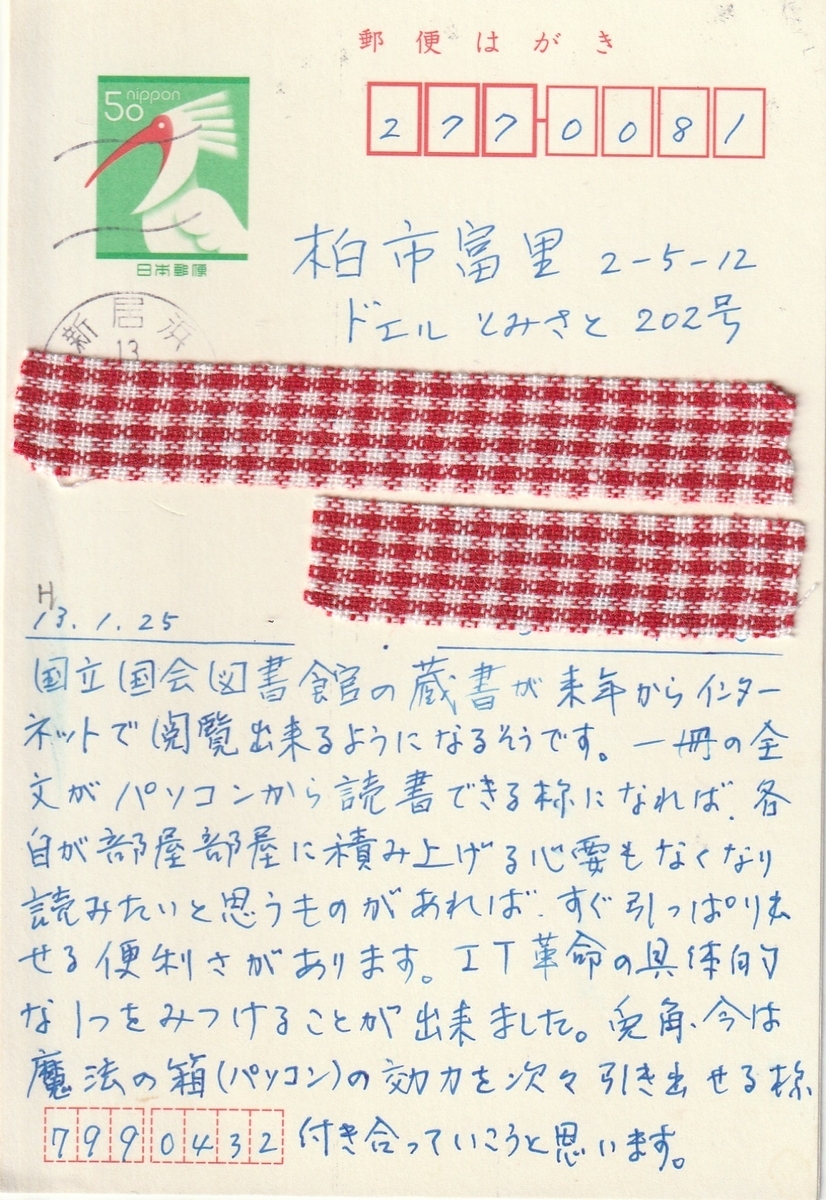 郵便はがき
50 nippon
日本郵便
277-0081
柏市富里 2-5-12
ドエル とみさと 202号
新居浜
13
H
13.1.25
国立国会図書館の蔵書が来年からインター
ネットで閲覧出来るようになるそうです。一冊の全
文がパソコンから読書できる様になれば、各
自が部屋部屋に積み上げる必要もなくなり
読みたいと思うものがあれば、すぐ引っぱり出
せる便利さがあります。IT革命の具体的
な1つをみつけることが出来ました。兎角、今は
魔法の箱(パソコン)の効力を次々引き出せる様
7990432 付き合っていこうと思います。